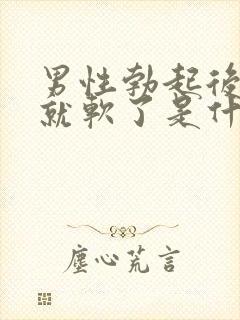 男性勃起後
就軟了是什
塵心荒言